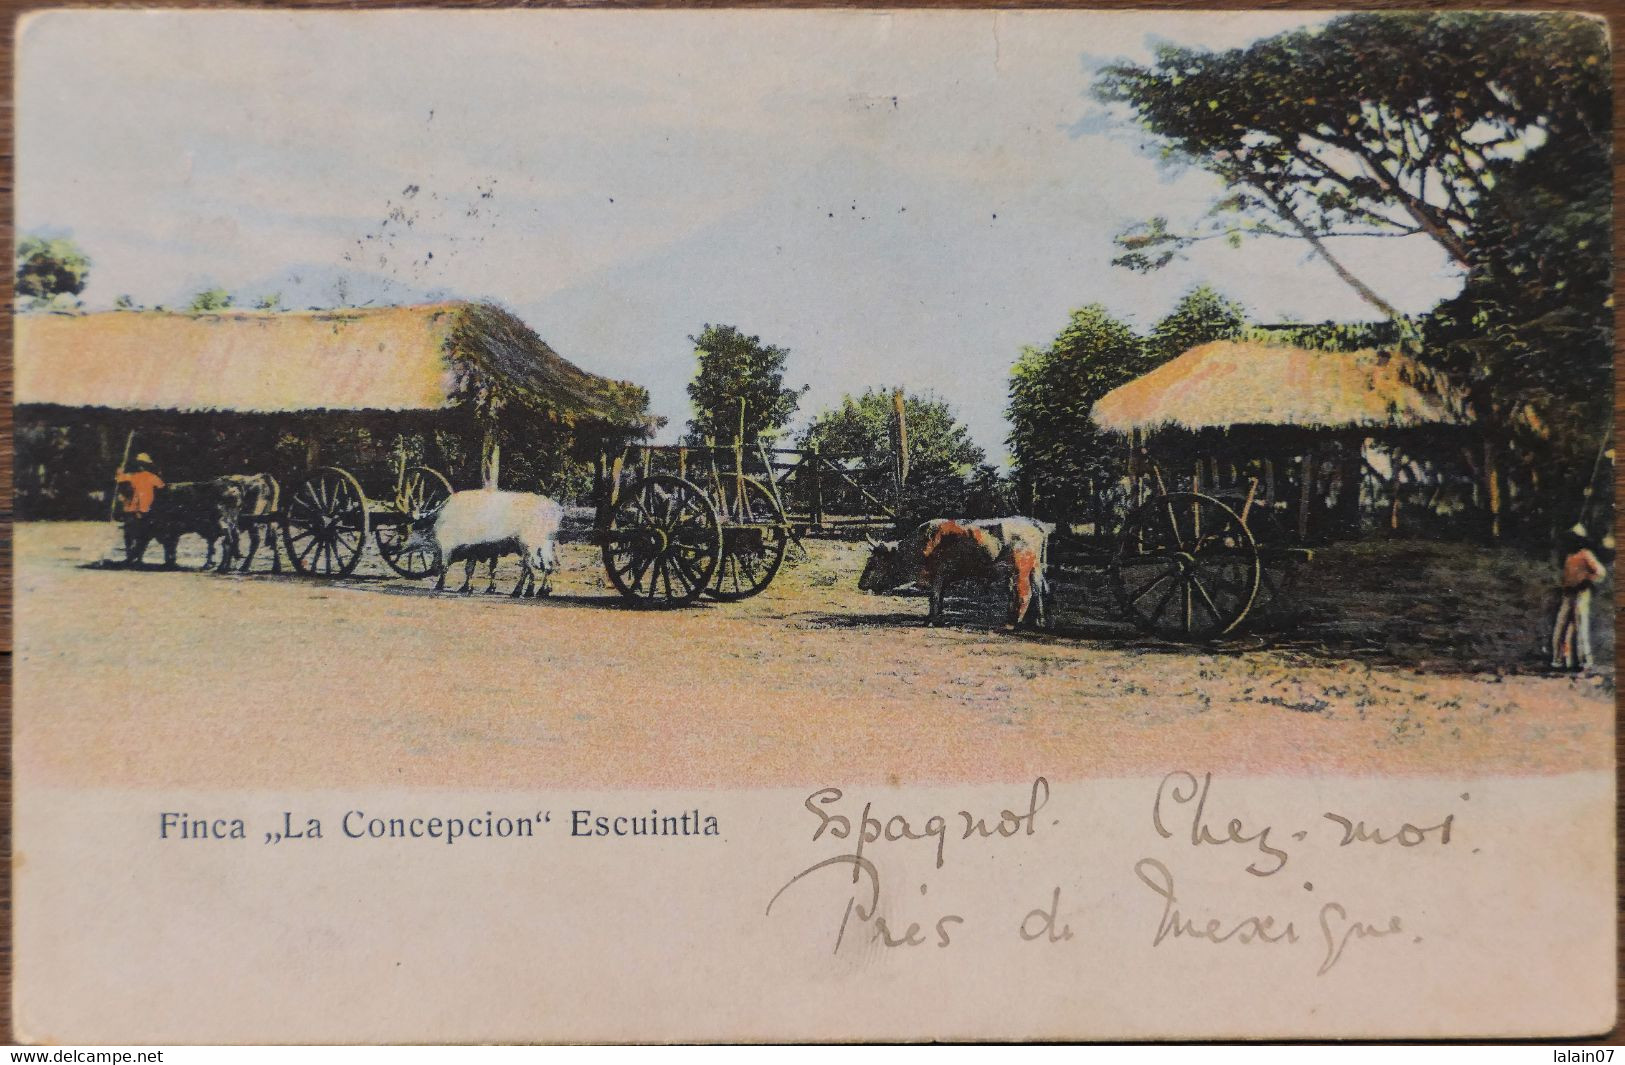 Finca „La Concepcion“ Escuintla
Espagnol. Chez-moi.
Près de Mexique.
delcampe.net
lalain07